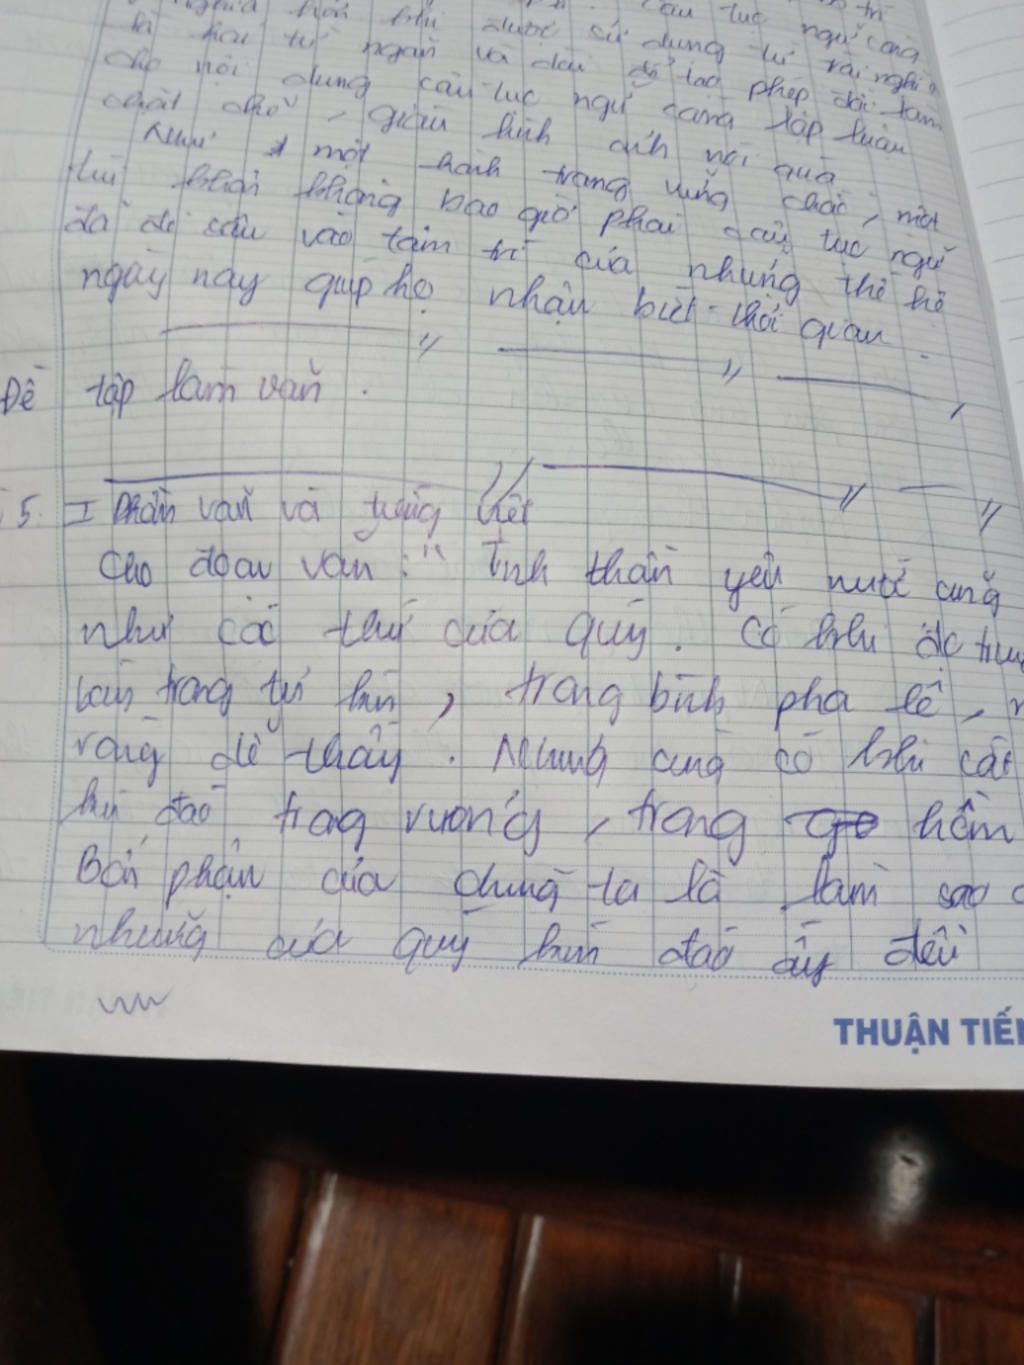 câu tục ngữ càng
là hai từ ngắn và dài để tạo phép đối làm
cho nội dung câu tục ngữ càng lập luận
chặt chẽ, giàu hình ảnh
Như một hành trang vững chắc, một
túi khôn không bao giờ phai câu tục ngữ
đã đi sâu vào tâm trí của những thế hệ
ngày nay giúp họ nhận biết thời gian
Đề tập làm văn.
5. I Phần văn và tiếng Việt
Cho đoạn văn: " Tinh thần yêu nước cũng
như các thứ của quý. Có khi được
trong tủ kín, trong bình pha lê,
ràng dễ thấy. Nhưng cũng có khi cất
kín đáo trong rương, trong hòm
Bổn phận của chúng ta là làm sao
những của quý kín đáo ấy đều
THUẬN TIẾ